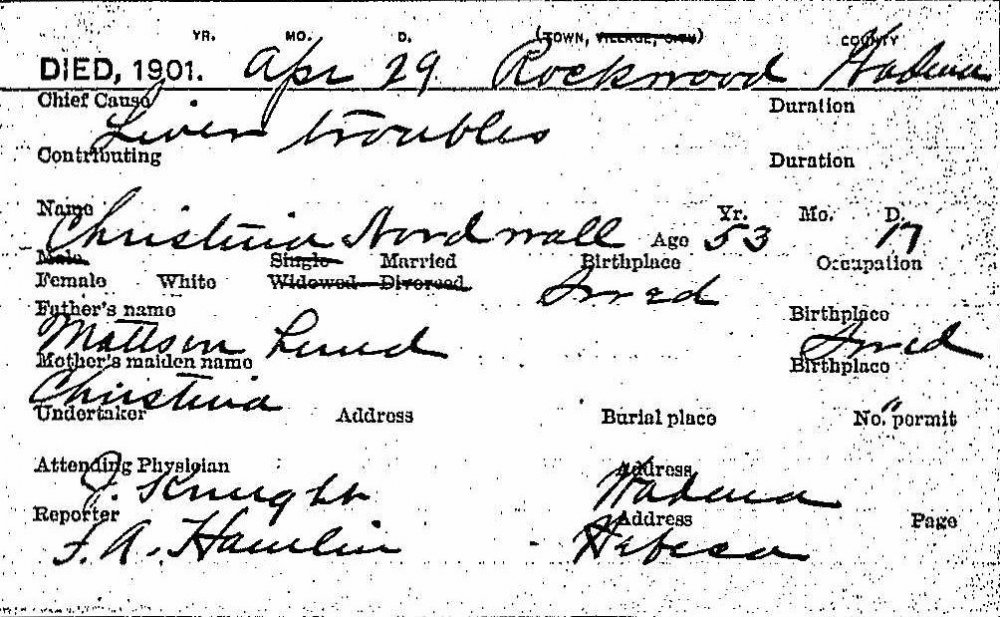 YR. MO. D. (TOWN, VILLAGE, CITY) COUNTY
DIED, 1901. Apr 29 Rockwood Wadena
Chief Cause Duration
Liver troubles
Contributing Duration
Name Yr. Mo. D.
Christina Nordwall Age 53 17
Male Single Married Birthplace Occupation
Female White Widowed Divorced Swed
Father's name Birthplace
Mattson Lund Swed
Mother's maiden name Birthplace
Christina "
Undertaker Address Burial place No. permit
Attending Physician Address
J. Knight Wadena
Reporter Address Page
F. A. Hamlin Hebeca